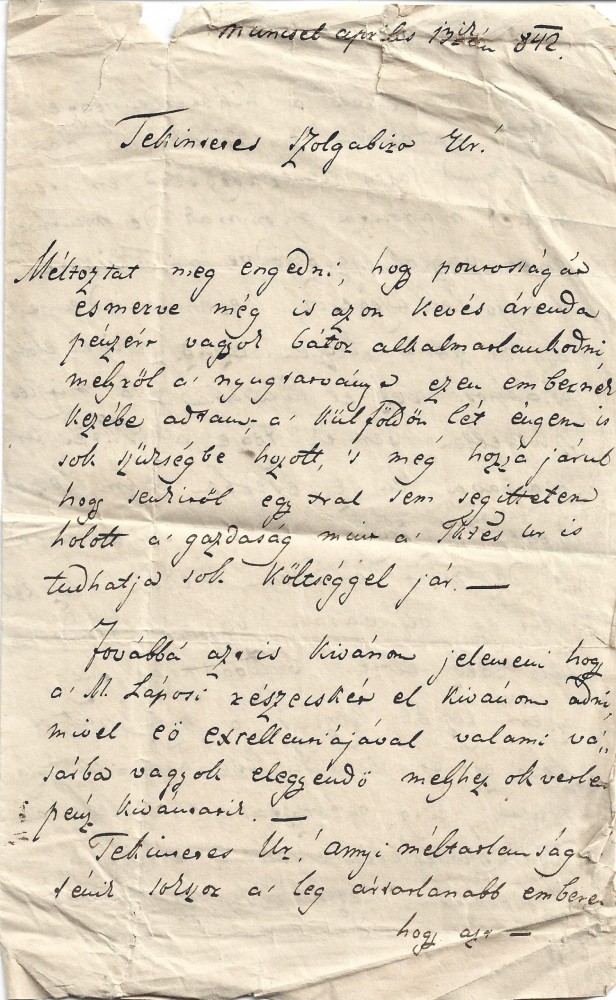 Muncsel április 13ik án 842.
Tekintetes Szolgabiro Ur!
Méltoztat meg engedni, hogy pontosságát
esmerve még is azon kevés árenda
pénzért vagyok bátor alkalmatlankodni,
melyről a' nyugtatványt ezen embernek
kezébe adtam, a' külföldön lét engem is
sok szükségbe hozott, 's még hozzá járul
hogy senkitől egy ...tal sem segittetem
holott a' gazdaság mint a' Ttes Ur is
tudhatja sok költséggel jár. —
Továbbá azt is kivánom jelenteni hogy
a' M. Láposi részecskét el kivánom adni,
mivel eö excellentiájával valami vá„
sárba vagyok elegyendö melyhez okvetle
pénz kivántatik. —
Tekintetes Ur! annyi méltatlanságo
ténik sokszor a' leg ártatlanabb embere
hogy azt —